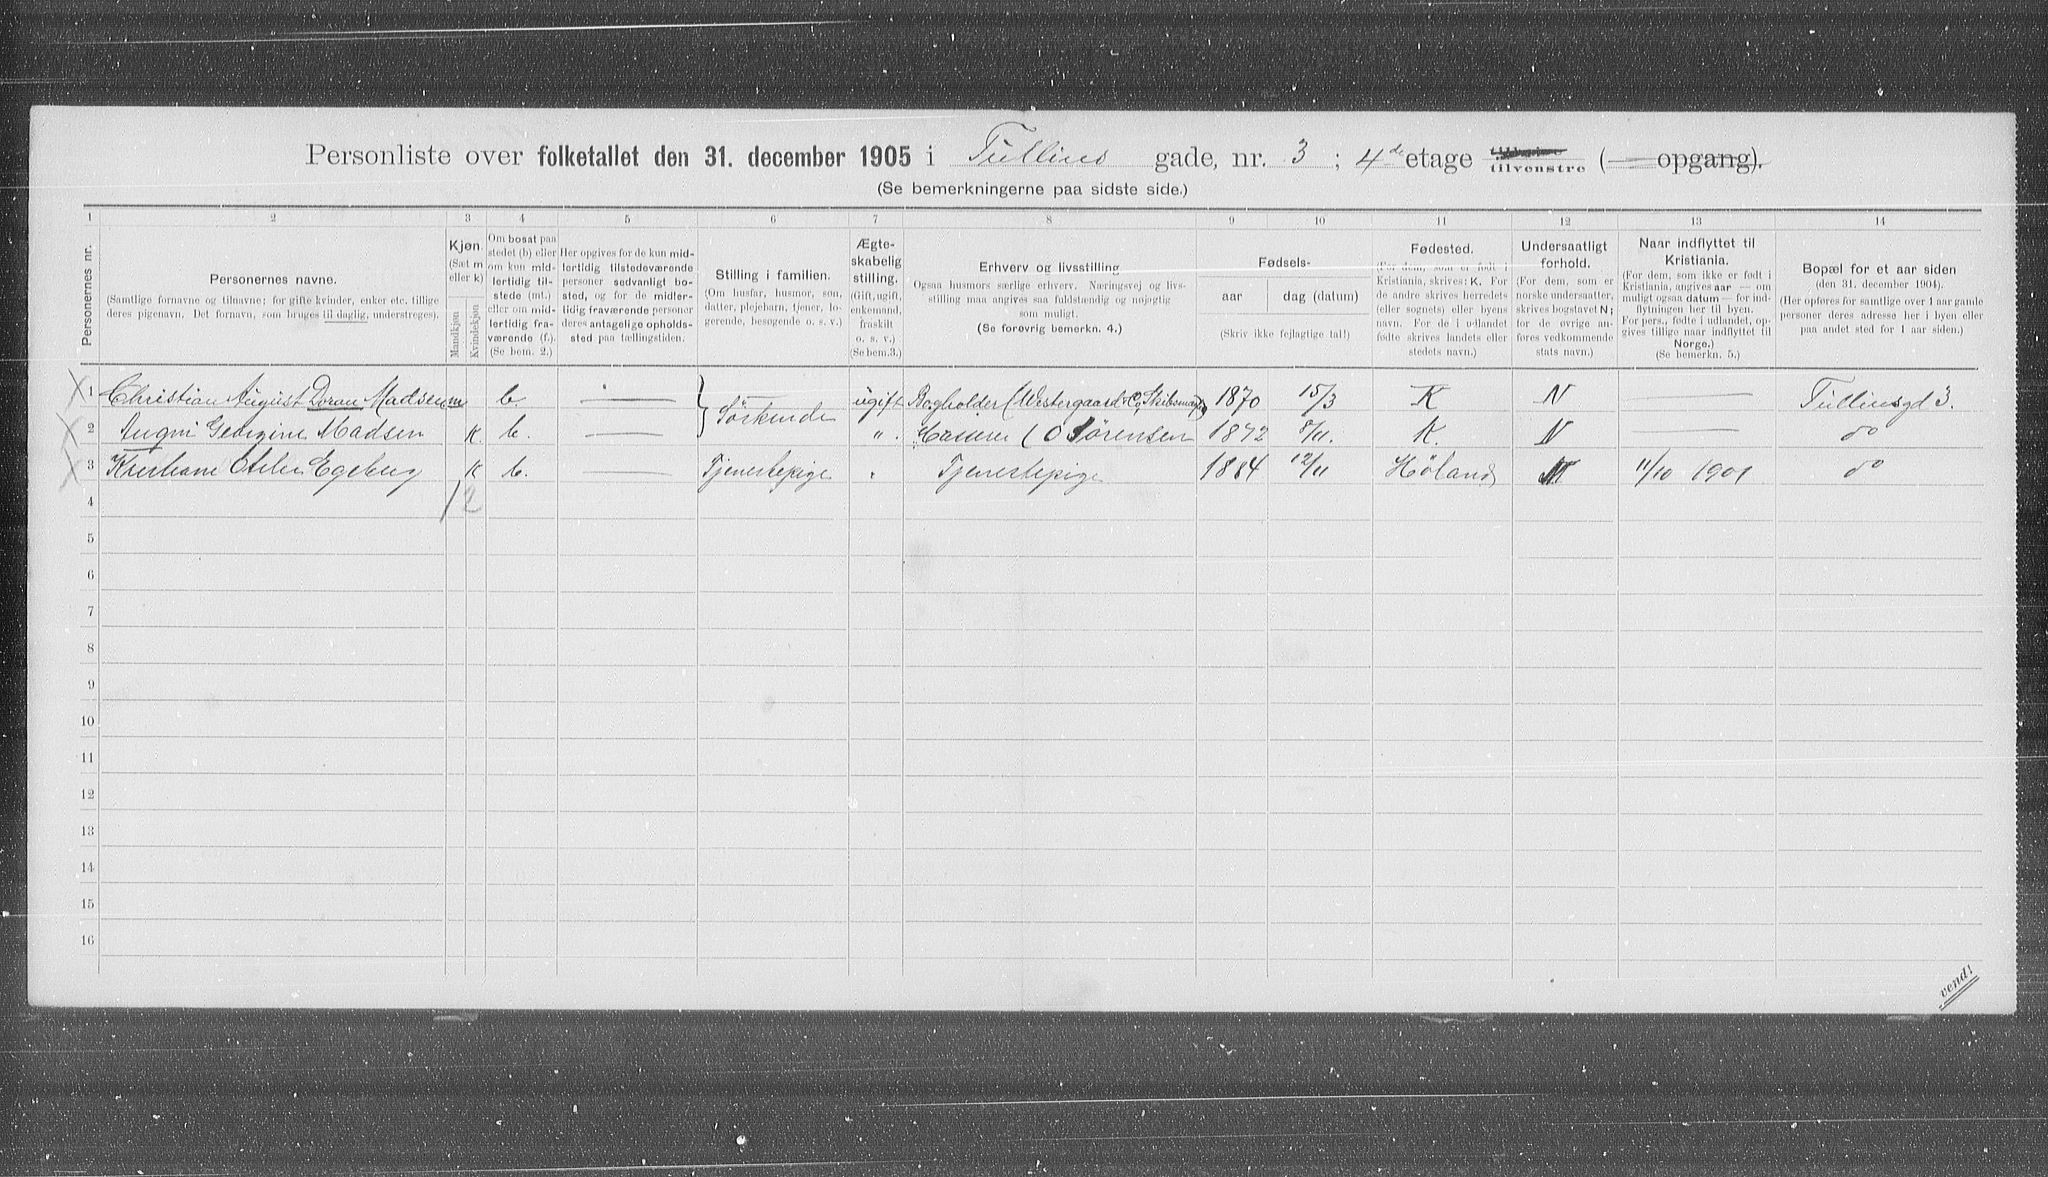 Personliste over folketallet den 31. december 1905 i Tullins gade, nr. 3; 4de etage tilvenstre ( — opgang).
(Se bemerkningerne paa sidste side.)
1 2 3 4 5 6 7 8 9 10 11 12 13 14
Personernes nr.
Personernes navne.
(Samtlige fornavne og tilnavne; for gifte kvinder, enker etc. tillige
deres pigenavn. Det fornavn, som bruges til daglig, understreges).
Kjøn.
(Sæt m
eller k)
Mandkjøn
Kvindekjøn
Om bosat paa
stedet (b) eller
om kun mid-
lertidig til-
stede (mt.)
eller om mid-
lertidig fra-
værende (f.).
(Se bem. 2.)
Her opgives for de kun mid-
lertidig tilstedeværende
personer sedvanligt bo-
sted, og for de midler-
tidig fraværende personer
deres antagelige opholds-
sted paa tællingstiden.
Stilling i familien.
(Om husfar, husmor, søn,
datter, plejebarn, tjener, lo-
gerende, besøgende o. s. v.)
Ægte-
skabelig
stilling.
(Gift, ugift,
enkemand,
fraskilt
o. s. v.)
(Se bem. 3.)
Erhverv og livsstilling
Ogsaa husmors særlige erhverv. Næringsvej og livs-
stilling maa angives saa fuldstændig og nøjagtig
som muligt.
(Se forøvrig bemerkn. 4.)
Fødsels-
aar
dag (datum)
(Skriv ikke fejlagtige tal!)
Fødested.
(For dem, som er født i
Kristiania, skrives: K. For
de andre skrives herredets
(eller sognets) eller byens
navn. For de i udlandet
fødte skrives landets eller
stedets navn.)
Undersaatligt
forhold.
(For dem, som er
norske undersaatter,
skrives bogstavet N;
for de øvrige an-
føres vedkommende
stats navn.)
Naar indflyttet til
Kristiania.
(For dem, som ikke er født i
Kristiania, angives aar — om
muligt ogsaa datum — for ind-
flytningen her til byen.
For pers., fødte i udlandet, op-
gives tillige naar indflyttet til
Norge.)
(Se bemerkn. 5.)
Bopæl for et aar siden
(den 31. december 1904).
(Her opføres for samtlige over 1 aar gamle
personer deres adresse her i byen eller
paa andet sted for 1 aar siden.)
1 Christian August Doran Madsen m b. — Søskende ugift Bogholder (Westergaard & Co, 1870 15/3 K N — Tullinsgd 3.
2 Georgine Madsen k. b. — " O Sørensen 1872 8/11. K. N — do
3 Egeberg k b. — Tjenestepige " Tjenestepige 1884 12/11 Høland N 11/10 1901 do
1/2
4
5
6
7
8
9
10
11
12
13
14
15
16
vend!